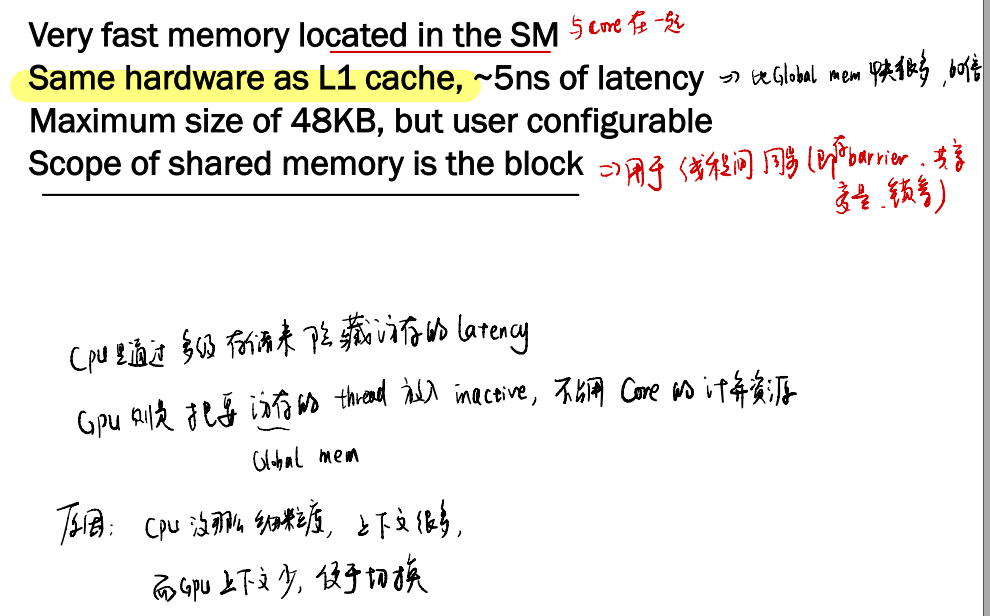 Very fast memory located in the SM 与core在一起
Same hardware as L1 cache, ~5ns of latency => 比Global mem 快很多, 60倍
Maximum size of 48KB, but user configurable
Scope of shared memory is the block => 用于线程间同步(即存barrier、共享
变量、锁等)
CPU是通过多级存储来隐藏访存的latency
GPU则是把要访存的thread放入inactive, 不占用Core的计算资源
Global mem
原因: CPU没那么细粒度, 上下文很多,
而GPU上下文少, 便于切换